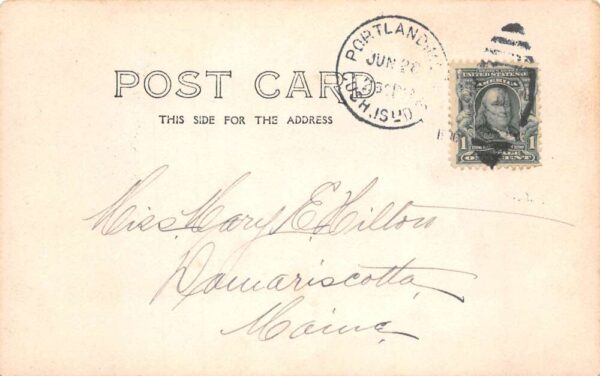 PORTLAND, M
JUN 26
CUSH. ISLD
UNITED STATES OF
AMERICA
1 1
ONE CENT
POST CARD
THIS SIDE FOR THE ADDRESS
Miss. Mary E. Hilton
Damariscotta
Maine